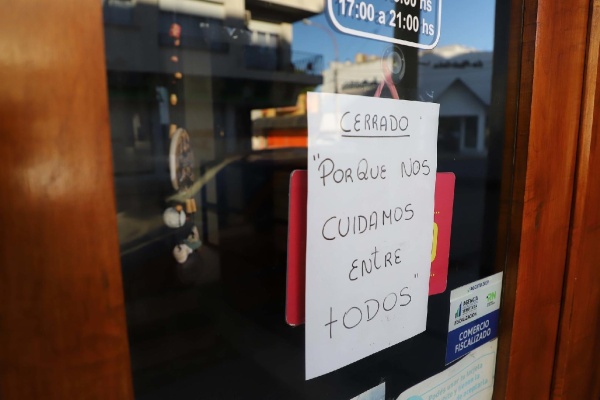 17:00 a 21:00 hs
CERRADO
"PORQUE NOS
CUIDAMOS
ENTRE
TODOS"
COMERCIO
FISCALIZADO